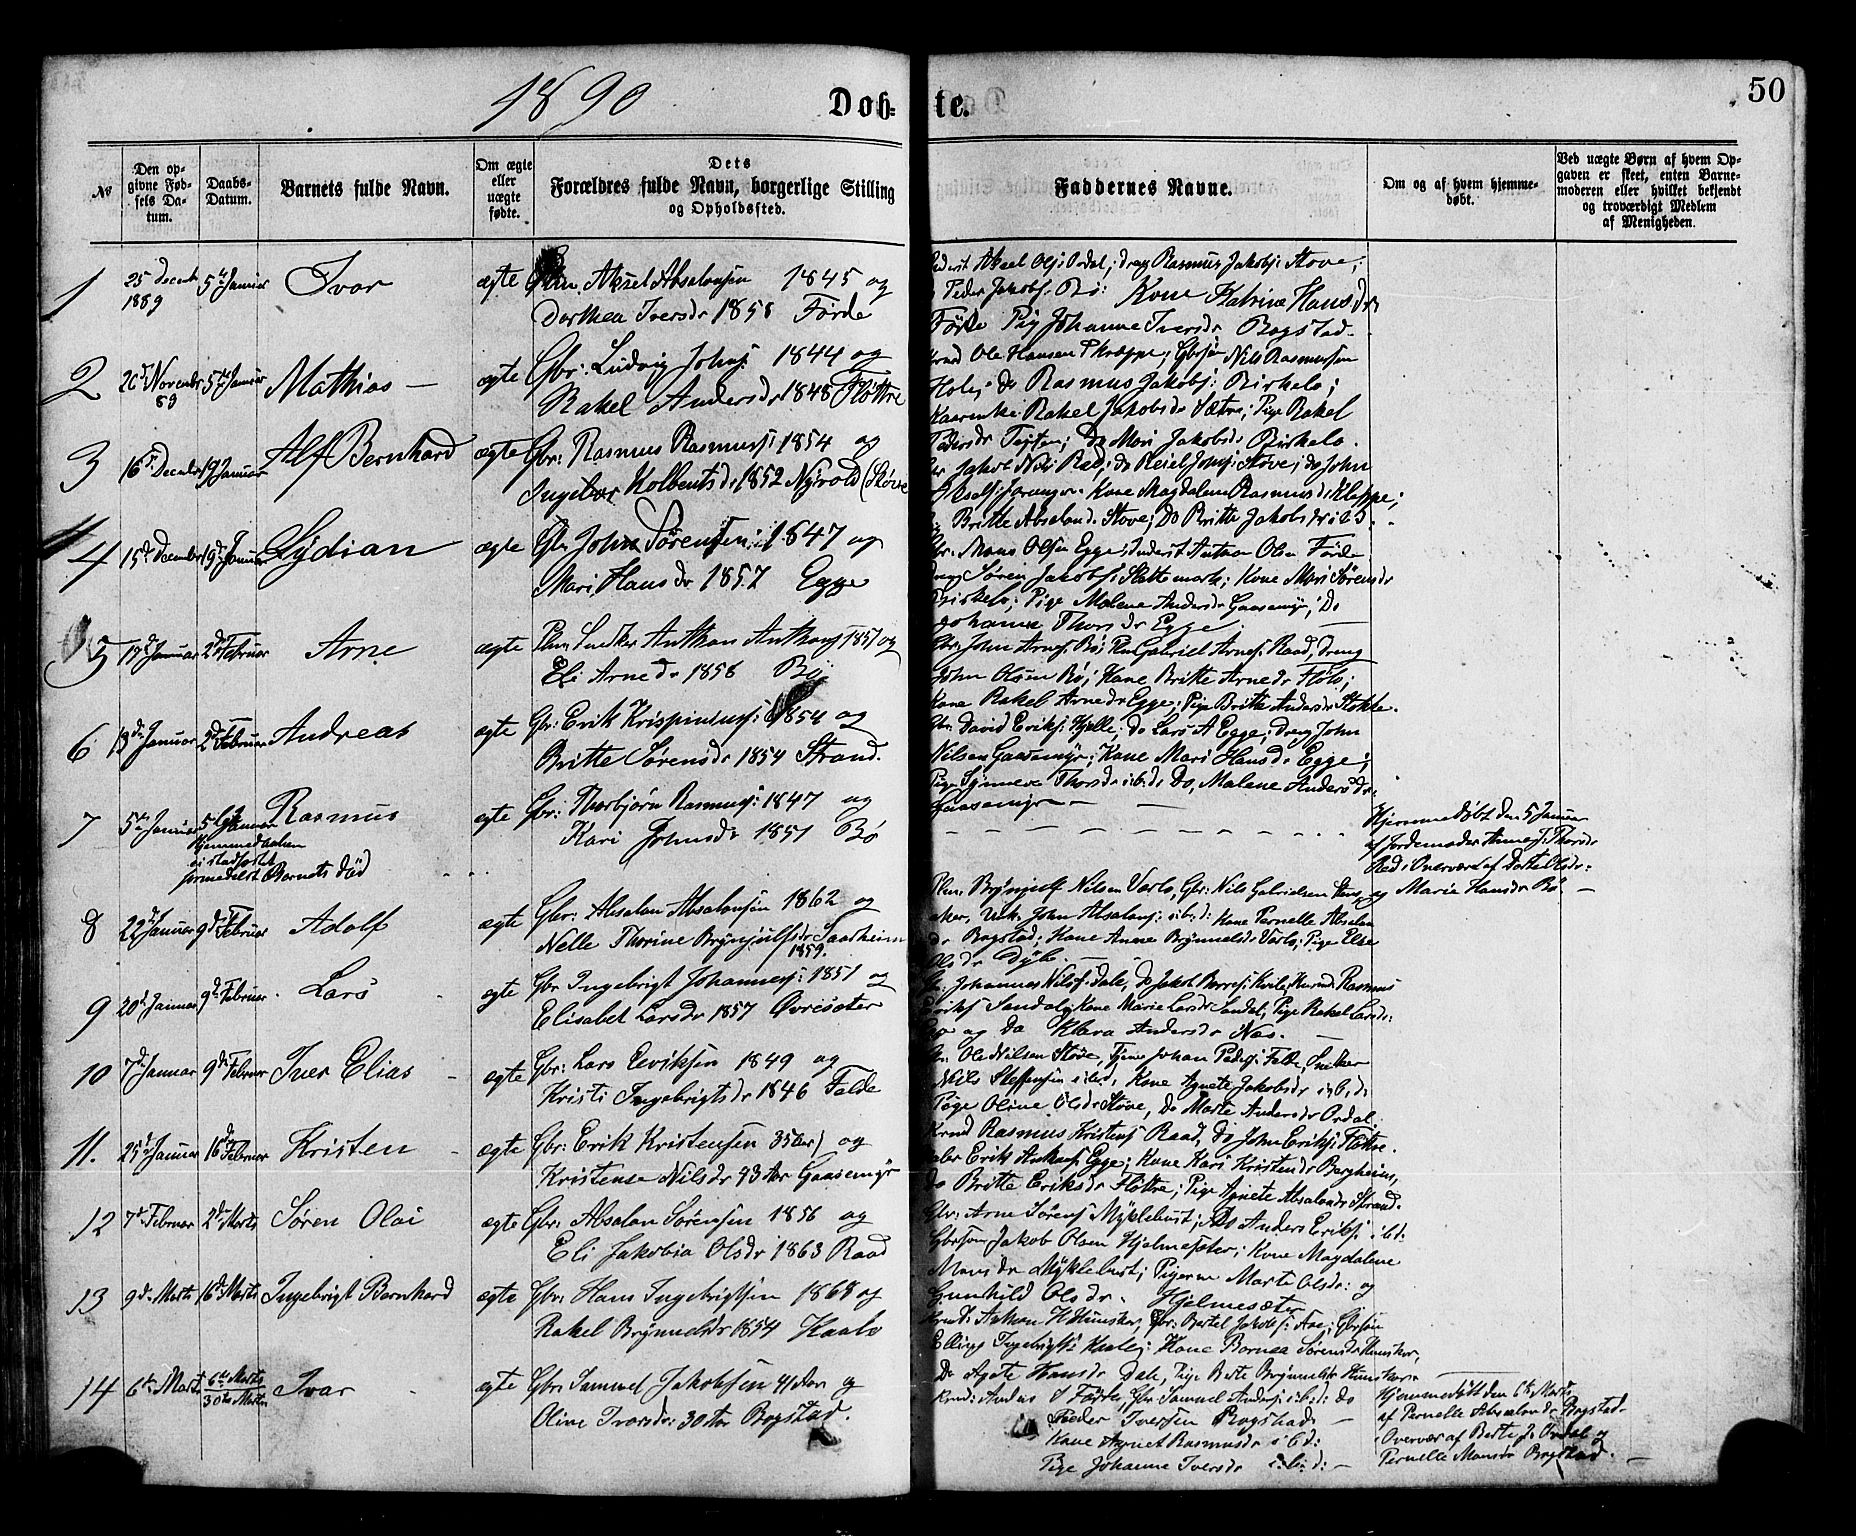 1890
Døb-
te.
50
No
Den op-
givne Fød-
sels Da-
tum.
Daabs-
Datum.
Barnets fulde Navn.
Om ægte
eller
uægte
fødte.
Dets
Forældres fulde Navn, borgerlige Stilling
og Opholdssted.
Faddernes Navne.
Om og af hvem hjemme-
døbt.
Ved uægte Børn af hvem Op-
gaven er skeet, enten Barne-
moderen eller hvilket bekjendt
og troværdigt Medlem
af Menigheden.
1 25 Decembr 5te Januar Ivar ægte Aksel Absalonsen 1845 og
1889 Dorthea Iversdr 1858 Førde
Aksel Ols: Ordal; dreng Rasmus Jakobs: Støve;
Peder Jakobs: Bø: Kone Katrine Hansdr
Førde Pig Johanne Iversdr Bogstad.
2 26de Novembr 5te Januar Mathias — ægte Gbr: Ludvig Johns: 1844 og
89 Rakel Andersdr 1848 Fløttre
Ole Hansen Skrøppe; Gbrsøn Nils Rasmussen
Hole; do Rasmus Jakobs: Birkelo;
Rakel Jakobsdr Sætre; Pige Rakel
Pedersdr; Do Mari Jakobsdr Birkelo.
3 16de Decembr 19 Januar Alf Bernhard ægte Gbr: Rasmus Rasmuss: 1854 og
Ingebor Kolbentsdr 1852 Nyvold (Støve
Jakob Nils: Raad; do Johns: Støve; do John
Kone Magdalene Rasmusdr Kleppe;
Britte Absalonsdr Støve; Do Britte Jakobsdr i b.
4 15de December 19de Januar Lydian ægte Gbr John Sørensen: 1847 og
Mari Hansdr 1857 Egge
Gbr: Mons Olsen Egge; Inderst Anton Olsen Førde
dreng Søren Jakobs: Slettemark; Kone Mari Sørensdr
Birkelo; Pige Malene Andersdr Gaasemyr; Do
Johanne Thorsdr Egge.
5 19de Januar 2den Februar Arne ægte Plm Snedker Anthon Anthons: 1851 og
Eli Arnedr 1858 Bø
Gbr: John Arnes: Bø; Plm Gabriel Arnes: Raad, dreng
John Olsen Bø; Kone Britte Arnedr Fløto;
Kone Rakel Arnedr Egge; Pige Britte Andersdr Stokke.
6 13de Januar 2den Februar Andreas ægte Gbr: Erik Krispinuss: 1854 og
Britte Sørensdr 1854 Strand.
Gbr: David Eriks: Hjelle; do Lars A Egge; dreng John
Nilsen Gaasemyr; Kone Mari Hansdr Egge;
Pige Synneve Thorsdr i.b.d: Do, Malene Andersdr:
Gaasemyr —
7 5te Januar 5te Januar Rasmus ægte Gbr: Thorbjørn Rasmuss: 1847 og
Kari Johnsdr 1851 Bø
Hjemmedaaben
ei stadfæstet
formedelst Barnets Død
Hjemmedøbt den 5 Januar
af Jordemoder Anne J. Thorsdr
Red: Overvær af Dorte Olsdr
og Marie Hansdr Bø. —
8 22de Januar 9de Februar Adolf ægte Gbr: Absalon Absalonsen 1862 og
Nelle Thorine Brynjulfsdr Saarheim
1859.
Plm: Brynjulf Nilsen Varlo, Gbr: Nils Gabrielsen
John Absalons: i.b.d: Kone Pernelle Absalons
dr Bogstad; Kone Anne Brynnelsdr Varlo; Pige Else
Olsdr Dybe.
9 20de Januar 9de Februar Lars ægte Gbr Ingebrigt Johanness: 1851 og
Elisabet Larsdr 1857 Øvresæter
Johannes Nils: Dale, do Jakob Rasmus
Sandal; Kone Marie Larsdr Sandal, Pige Rakel Larsdr:
og Do Klara Andersdr Næs. —
10 7de Januar 9de Februar Iver Elias ægte Gbr: Lars Eriksen 1849 og
Kristi Ingebrigtsdr 1846 Felde
Ole Nilsen Støve, Tjener Johan Peders: Felde, Snedker
Nils Steffensen i.b.d: Kone Agnete Jakobsdr i.b.d:
Pige Oline Olsdr Støve, Do Marte Andersdr Ordal:
11. 25de Januar 16de Februar Kristen ægte Gbr: Erik Kristensen 35 Aar) og
Kristense Nilsdr 43 Aar Gaasemyr
Krnd Rasmus Kristens: Raad, do John Eriks: Fløttre.
Erik Antons: Egge; Kone Kari Kristendr Bergheim,
do Britte Eriksdr Fløttre; Pige Agnete Absalonsdr Strand.
12 7de Februar 2de Marts Søren Olai ægte Gbr: Absalon Sørensen 1856 og
Eli Jakobia Olsdr 1863 Raad
Gbr: Arne Sørens: Myklebust; do Anders Eriks: i b.d:
Gbrsøn Jakob Olsen Hjelmesæter; Kone Magdalene
Monsdr Myklebust; Pigerne Marte Olsdr: og
Gunhild Olsdr. Hjelmesæter
13 9de Marts 16de Marts Ingebrigt Bernhard ægte Gbr: Hans Ingebrigtsen 1868 og
Rakel Brynnelsdr 1854 Kaalo
Krnd: Anton H. Hunsker, Gbr: Bertel Jakobs: Aae; Gbrsøn
Elling Ingebrigts: Kvile; Kone Bornea Sørensdr Hunsker,
Do Agate Hansdr Dale, Pige Berte Brynnelsdr Hunsker.
14 6te Marts 6te Marts Ivar ægte Gbr: Samuel Jakobsen 41 Aar og
30te Marts Oline Ivarsdr: 30 Aar Bogstad.
Krnd: Anders Førde, Gbr Samuel Anders: i.b.d: do
Peder Iversen Bogstad: —
Kone Agnet Rasmusdr i b d:
Pige Johanne Iversdr i.b.d: —
Hjemmedøbt den 6te Marts
af Pernelle Absalonsdr Bogstad.
Overvær af Berte J. Ordal og
Pernelle Monsdr Bogstad. —